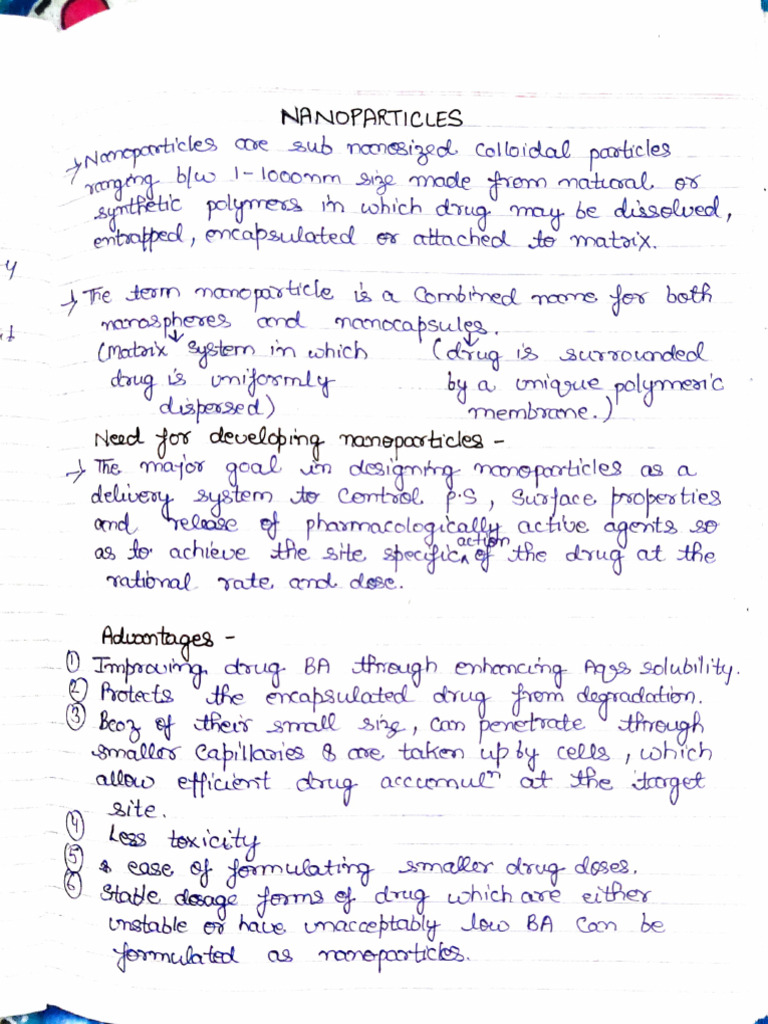 NANOPARTICLES
→ Nanoparticles are sub nanosized colloidal particles
ranging b/w 1-1000nm size made from natural or
synthetic polymers in which drug may be dissolved,
entrapped, encapsulated or attached to matrix.
→ The term nanoparticle is a combined name for both
nanospheres and nanocapsules.
(Matrix system in which
drug is uniformly
dispersed)
(drug is surrounded
by a unique polymeric
membrane.)
Need for developing nanoparticles -
→ The major goal in designing nanoparticles as a
delivery system to control P.S, surface properties
and release of pharmacologically active agents so
as to achieve the site specific action of the drug at the
rational rate and dose.
Advantages -
① Improving drug BA through enhancing Aqss solubility.
② Protects the encapsulated drug from degradation.
③ Bcoz of their small size, can penetrate through
smaller capillaries & are taken up by cells, which
allow efficient drug accumulⁿ at the target
site.
④ Less toxicity
⑤ ease of formulating smaller drug doses.
⑥ Stable dosage forms of drug which are either
unstable or have unacceptably low BA can be
formulated as nanoparticles.